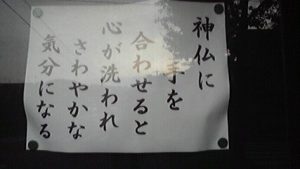 神仏に
手を
合わせると
心が洗われ
さわやかな
気分になる